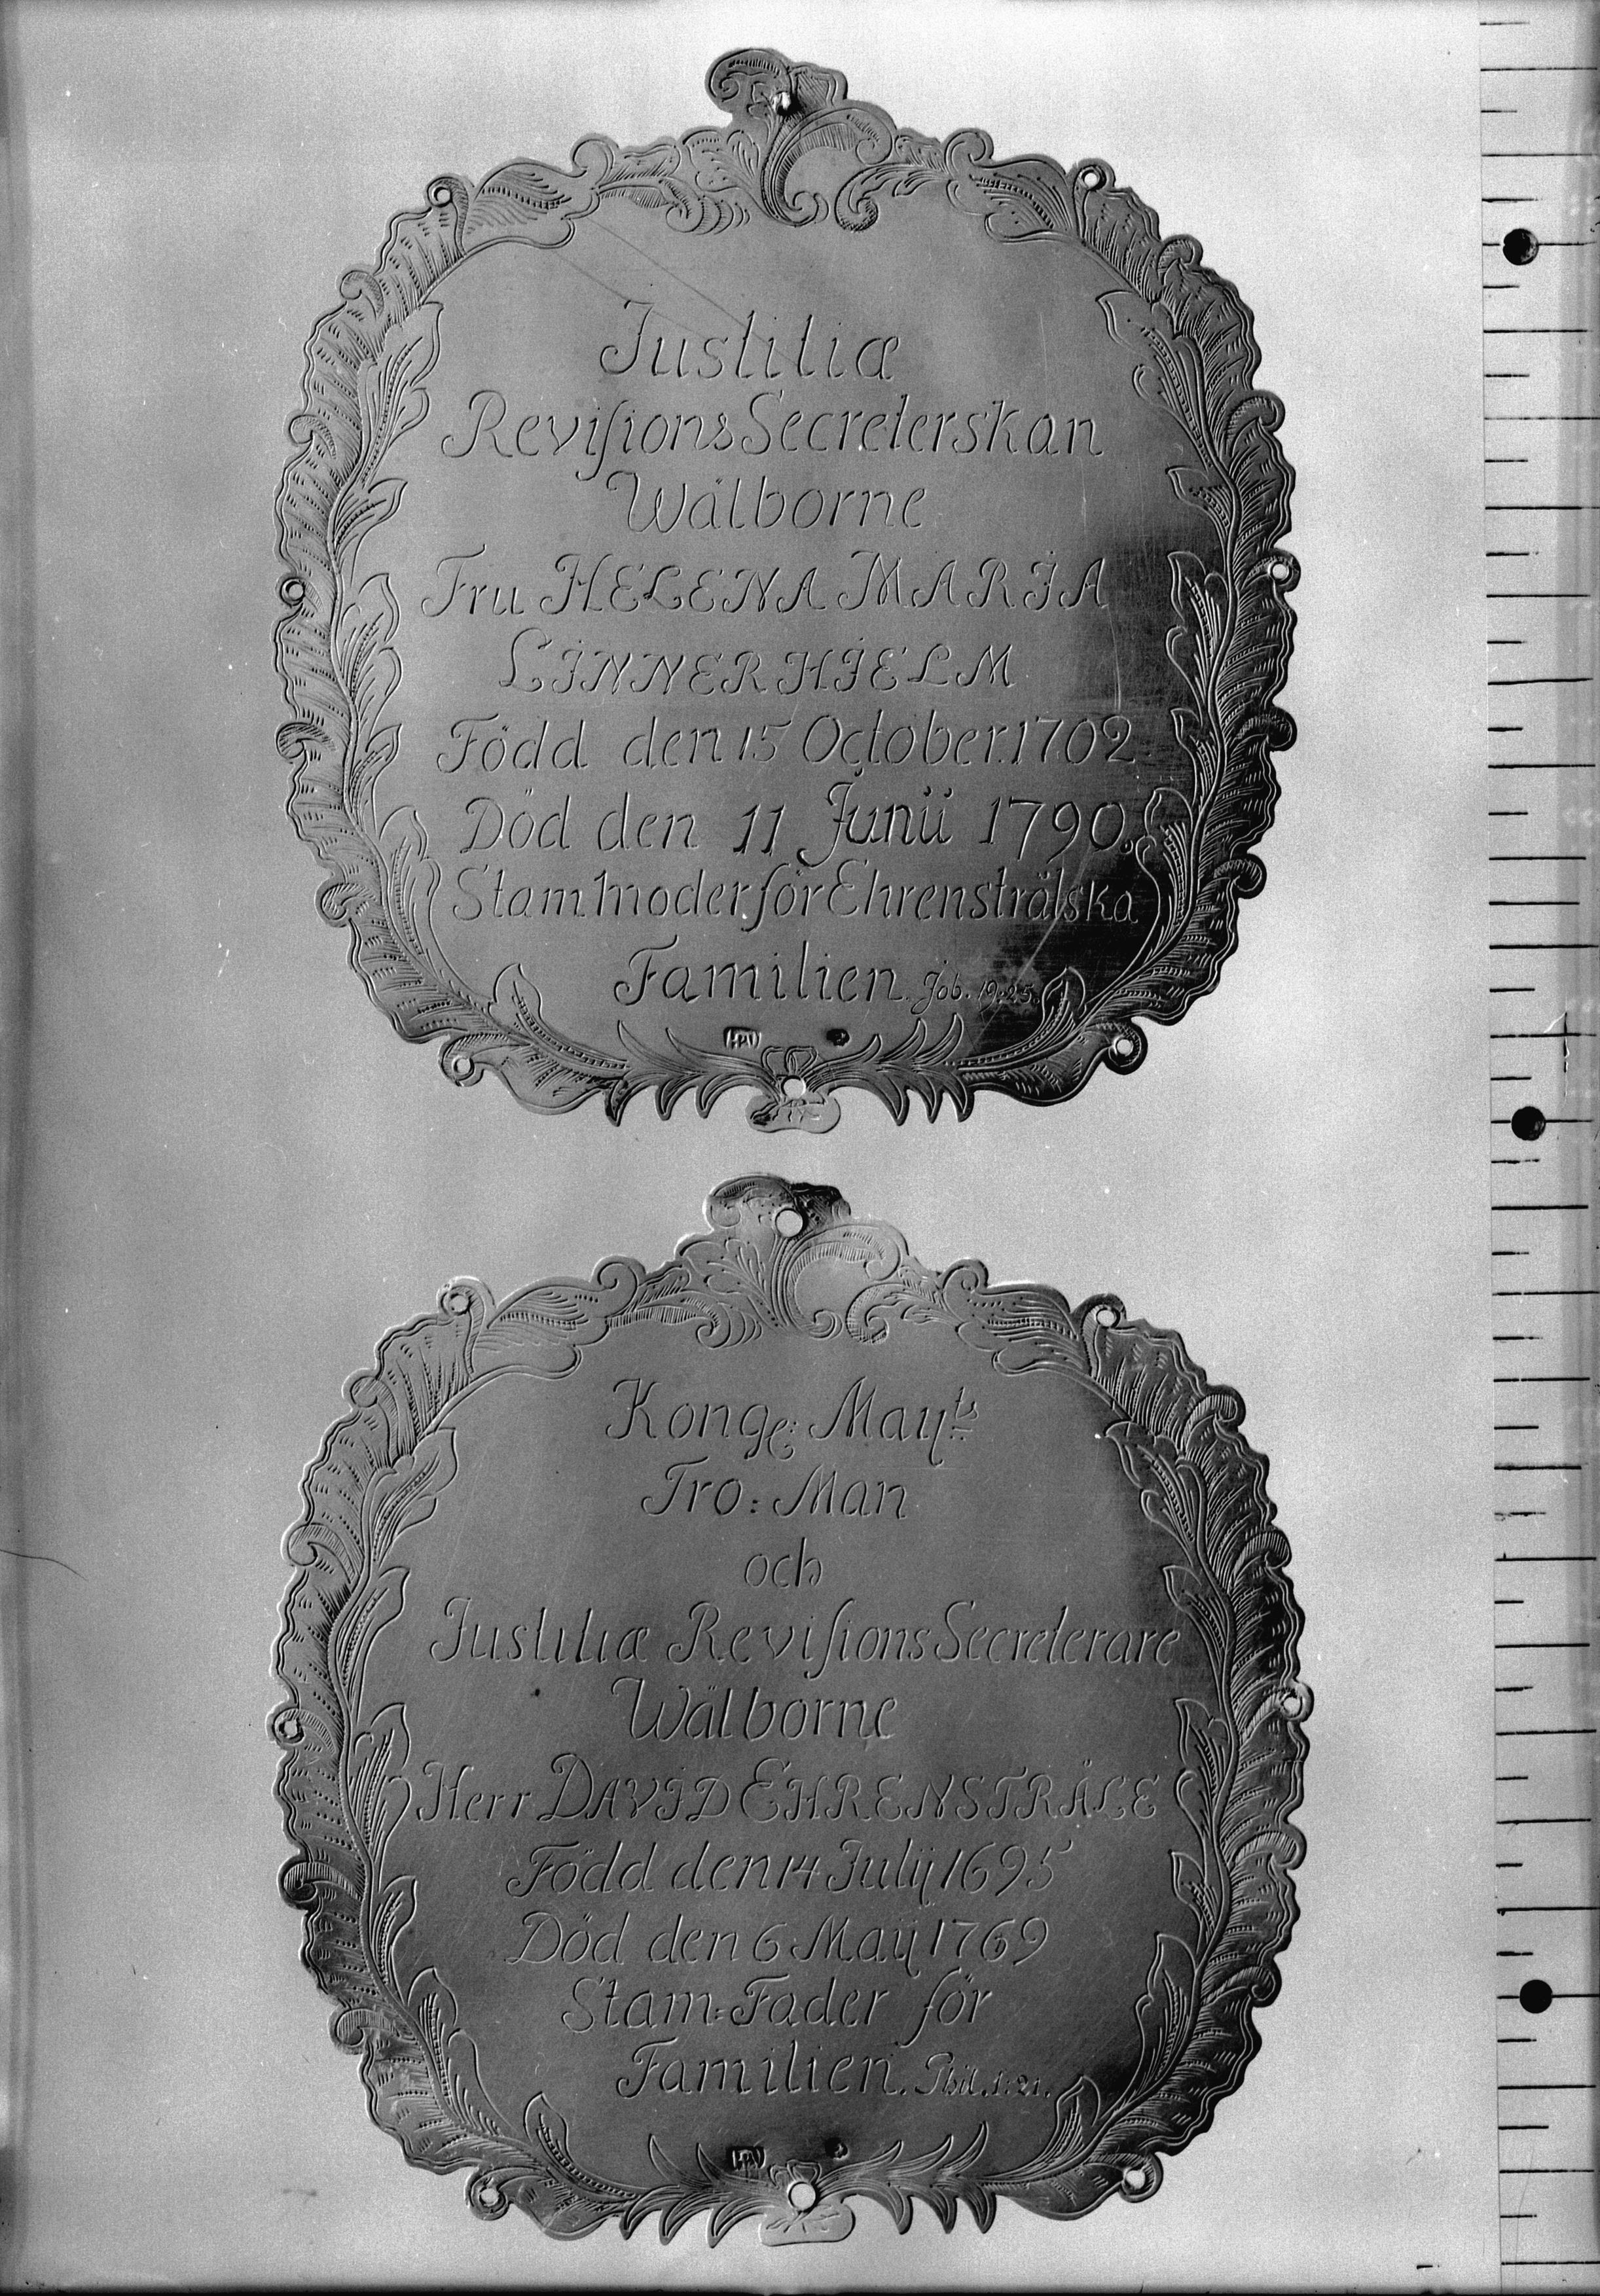 Justitiæ
Reviſions Secreterskan
Wälborne
Fru HELENA MARIA
LINNERHIELM
Född den 15 October. 1702
Död den 11 Junii 1790.
Stam moder för Ehrensträlska
Familien. Job. 19. 25.
Kongl: Maÿts
Tro: Man
och
Justitiæ Reviſions Secreterare
Wälborne
Herr DAVID EHRENSTRÅLE
Född den 14 Julÿ 1695
Död den 6 Maÿ 1769
Stam: Fader för
Familien. Phil. 1: 21.